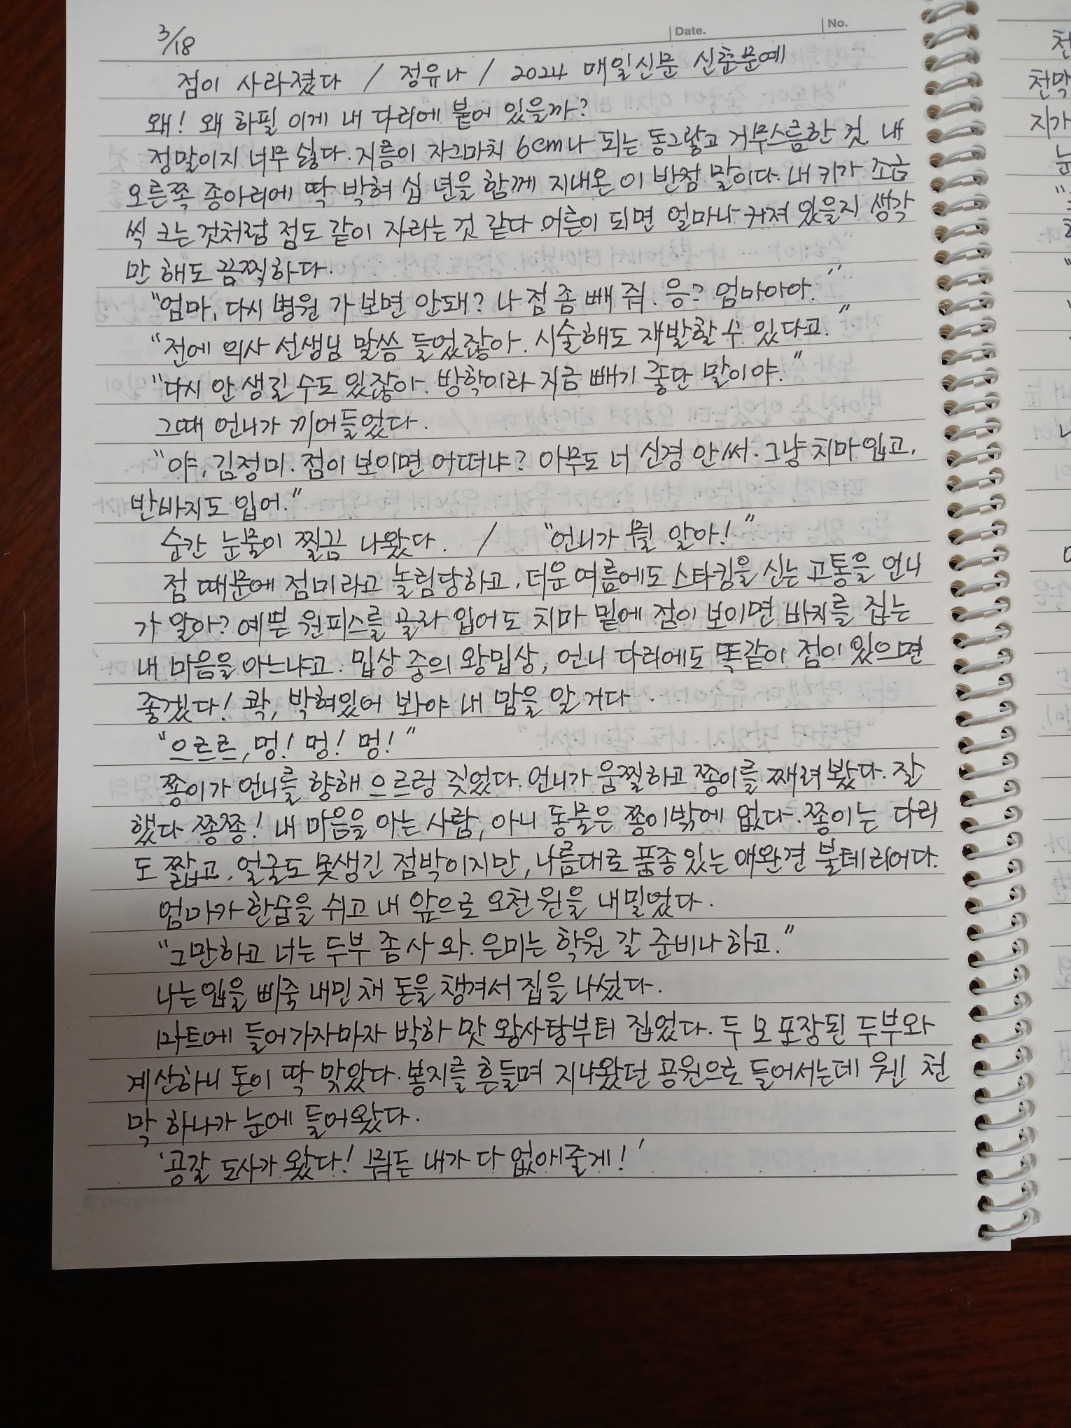 3/18
Date.
No.
점이 사라졌다 / 정유나 / 2024 매일신문 신춘문예
왜! 왜 하필 이게 내 다리에 붙어 있을까?
정말이지 너무 싫다. 지름이 자그마치 6cm나 되는 동그랗고 거무스름한 것. 내
오른쪽 종아리에 딱 박혀 십 년을 함께 지내온 이 반점 말이다. 내 키가 조금
씩 크는 것처럼 점도 같이 자라는 것 같다. 어른이 되면 얼마나 커져 있을지 생각
만 해도 끔찍하다.
"엄마, 다시 병원 가 보면 안돼? 나 점 좀 빼 줘. 응? 엄마아아."
"전에 의사 선생님 말씀 들었잖아. 시술해도 재발할 수 있다고."
"다시 안 생길 수도 있잖아. 방학이라 지금 빼기 좋단 말이야."
그때 언니가 끼어들었다.
"야, 김정미. 점이 보이면 어떠냐? 아무도 너 신경 안 써. 그냥 치마 입고,
반바지도 입어."
순간 눈물이 찔끔 나왔다. / "언니가 뭘 알아!"
점 때문에 점미라고 놀림당하고, 더운 여름에도 스타킹을 신는 고통을 언니
가 알아? 예쁜 원피스를 골라 입어도 치마 밑에 점이 보이면 바지를 집는
내 마음을 아느냐고. 밉상 중의 왕밉상, 언니 다리에도 똑같이 점이 있으면
좋겠다! 콱, 박혀있어 봐야 내 맘을 알 거다.
"으르르, 멍! 멍! 멍!"
쫑이가 언니를 향해 으르렁 짖었다. 언니가 움찔하고 쫑이를 째려 봤다. 잘
했다 쫑쫑! 내 마음을 아는 사람, 아니 동물은 쫑이밖에 없다. 쫑이는 다리
도 짧고, 얼굴도 못생긴 점박이지만, 나름대로 품종 있는 애완견 불테리어다.
엄마가 한숨을 쉬고 내 앞으로 오천 원을 내밀었다.
"그만하고 너는 두부 좀 사 와. 은미는 학원 갈 준비나 하고."
나는 입을 삐죽 내민 채 돈을 챙겨서 집을 나섰다.
마트에 들어가자마자 박하 맛 왕사탕부터 집었다. 두 모 포장된 두부와
계산하니 돈이 딱 맞았다. 봉지를 흔들며 지나왔던 공원으로 들어서는데 웬 천
막 하나가 눈에 들어왔다.
'공갈 도사가 왔다! 뭐든 내가 다 없애줄게!'